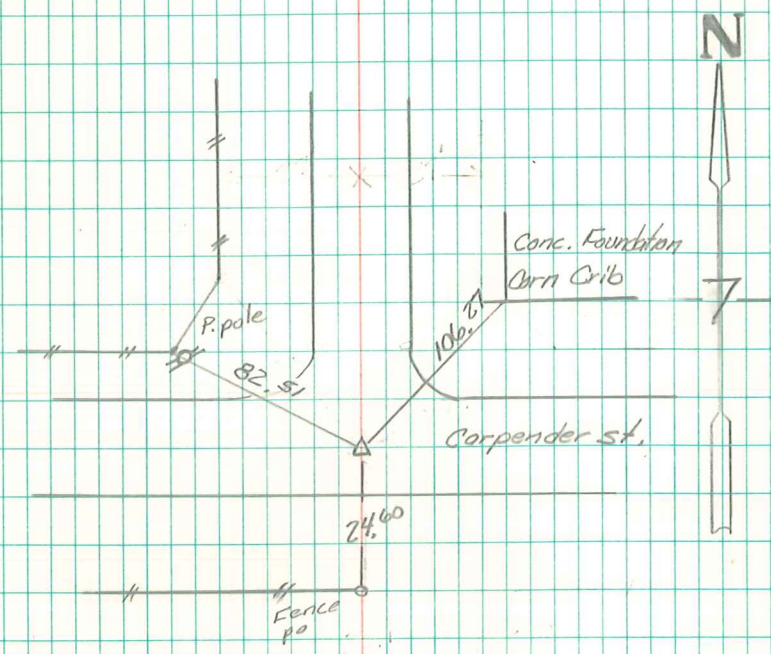 N
Conc. Foundation
Corn Crib
P.pole
106.27
82.51
Carpender st.
24.60
Fence
po